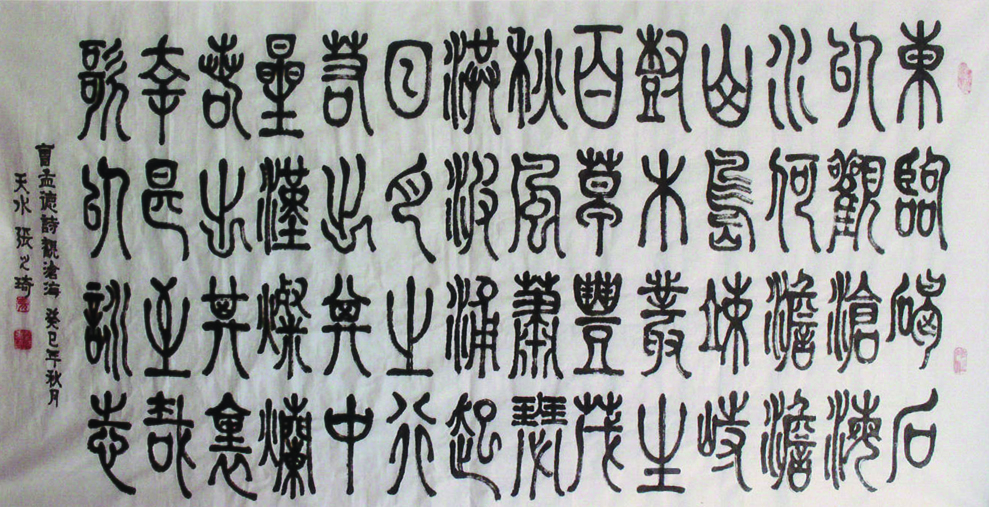 東臨碣石
以觀滄海
水何澹澹
山島竦峙
樹木叢生
百草豐茂
秋風蕭瑟
洪波涌起
日月之行
若出其中
星漢燦爛
若出其裏
幸甚至哉
歌以詠志
曹孟德詩觀滄海 癸巳年秋月
天水張之琦